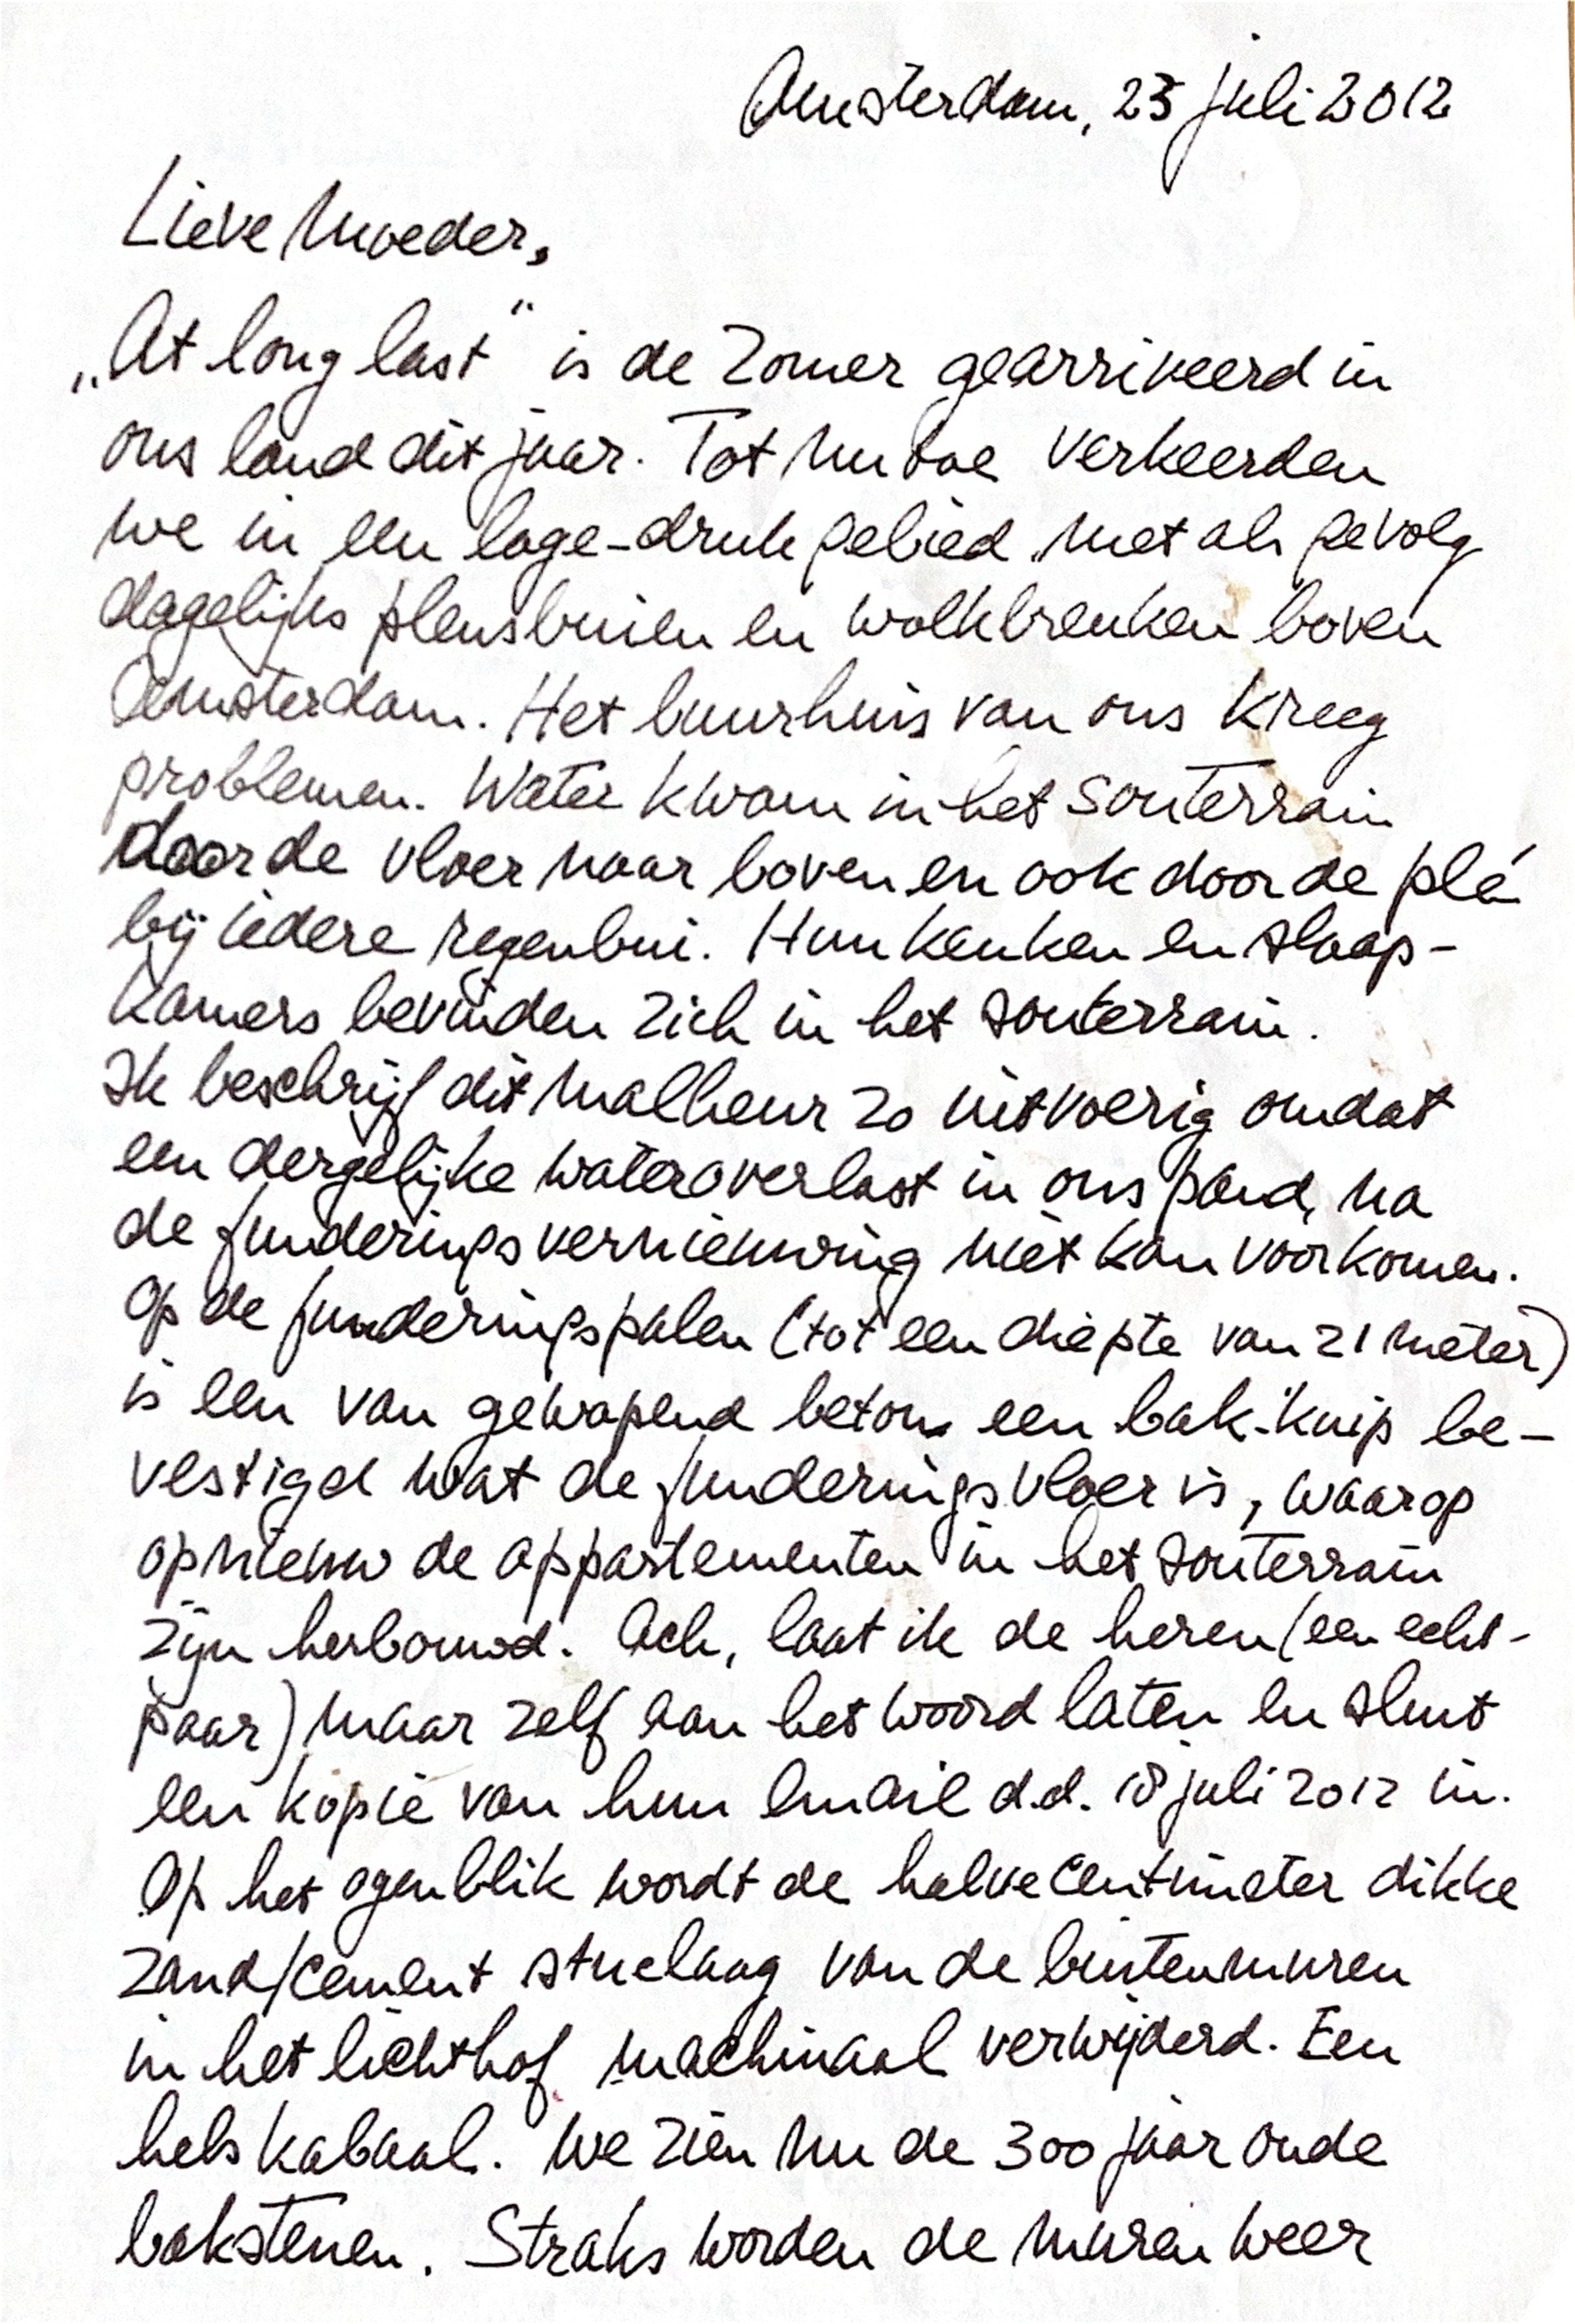 Amsterdam, 23 juli 2012
Lieve Moeder,
„At long last" is de zomer gearriveerd in
ons land dit jaar. Tot nu toe verkeerden
we in een lage-druk gebied met als gevolg
dagelijks plensbuien en wolkbreuken boven
Amsterdam. Het buurhuis van ons kreeg
problemen. Water kwam in het souterrain
door de vloer naar boven en ook door de plé
bij iedere regenbui. Hun keuken en slaap-
kamers bevinden zich in het souterrain.
Ik beschrijf dit malheur zo uitvoerig omdat
een dergelijke wateroverlast in ons pand, na
de funderingsvernieuwing niet kan voorkomen.
Op de funderingspalen (tot een diepte van 21 meter)
is een van gewapend beton een bak-kuip be-
vestigd wat de funderingsvloer is, waarop
opnieuw de appartementen in het souterrain
zijn herbouwd. Ach, laat ik de heren (een echt-
paar) maar zelf aan het woord laten en sluit
een kopie van hun email d.d. 18 juli 2012 in.
Op het ogenblik wordt de halve centimeter dikke
zand/cement stuclaag van de buitenmuren
in het lichthof machinaal verwijderd. Een
hels kabaal. We zien nu de 300 jaar oude
bakstenen. Straks worden de muren weer